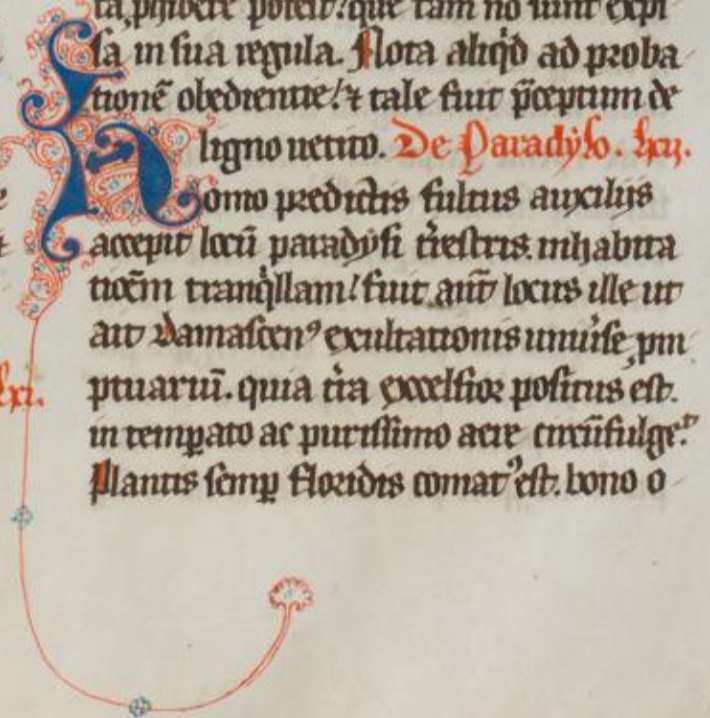 ta, phibere poterit? que tam̄ nō sunt expł
sa in sua regula. Nota aliqͥd ad proba
tionē obedientie! ⁊ tale fuit p̄ceptum de
ligno uetito. De Paradyso. lxij.
Homo predictis fultus auxilijs
accepit locū paradysi t̄restris. inhabita
tōem tranqͥllam! fuit aut̄ locus ille ut
ait Damascenꝰ exultationis uniũse, pm
lxi.
ptuariū. quia t̄ra excelsior positus est.
in temꝑato ac purissimo aere circūfulgeᵗ.
Plantis semꝑ floridis comatꝰ est. bono o